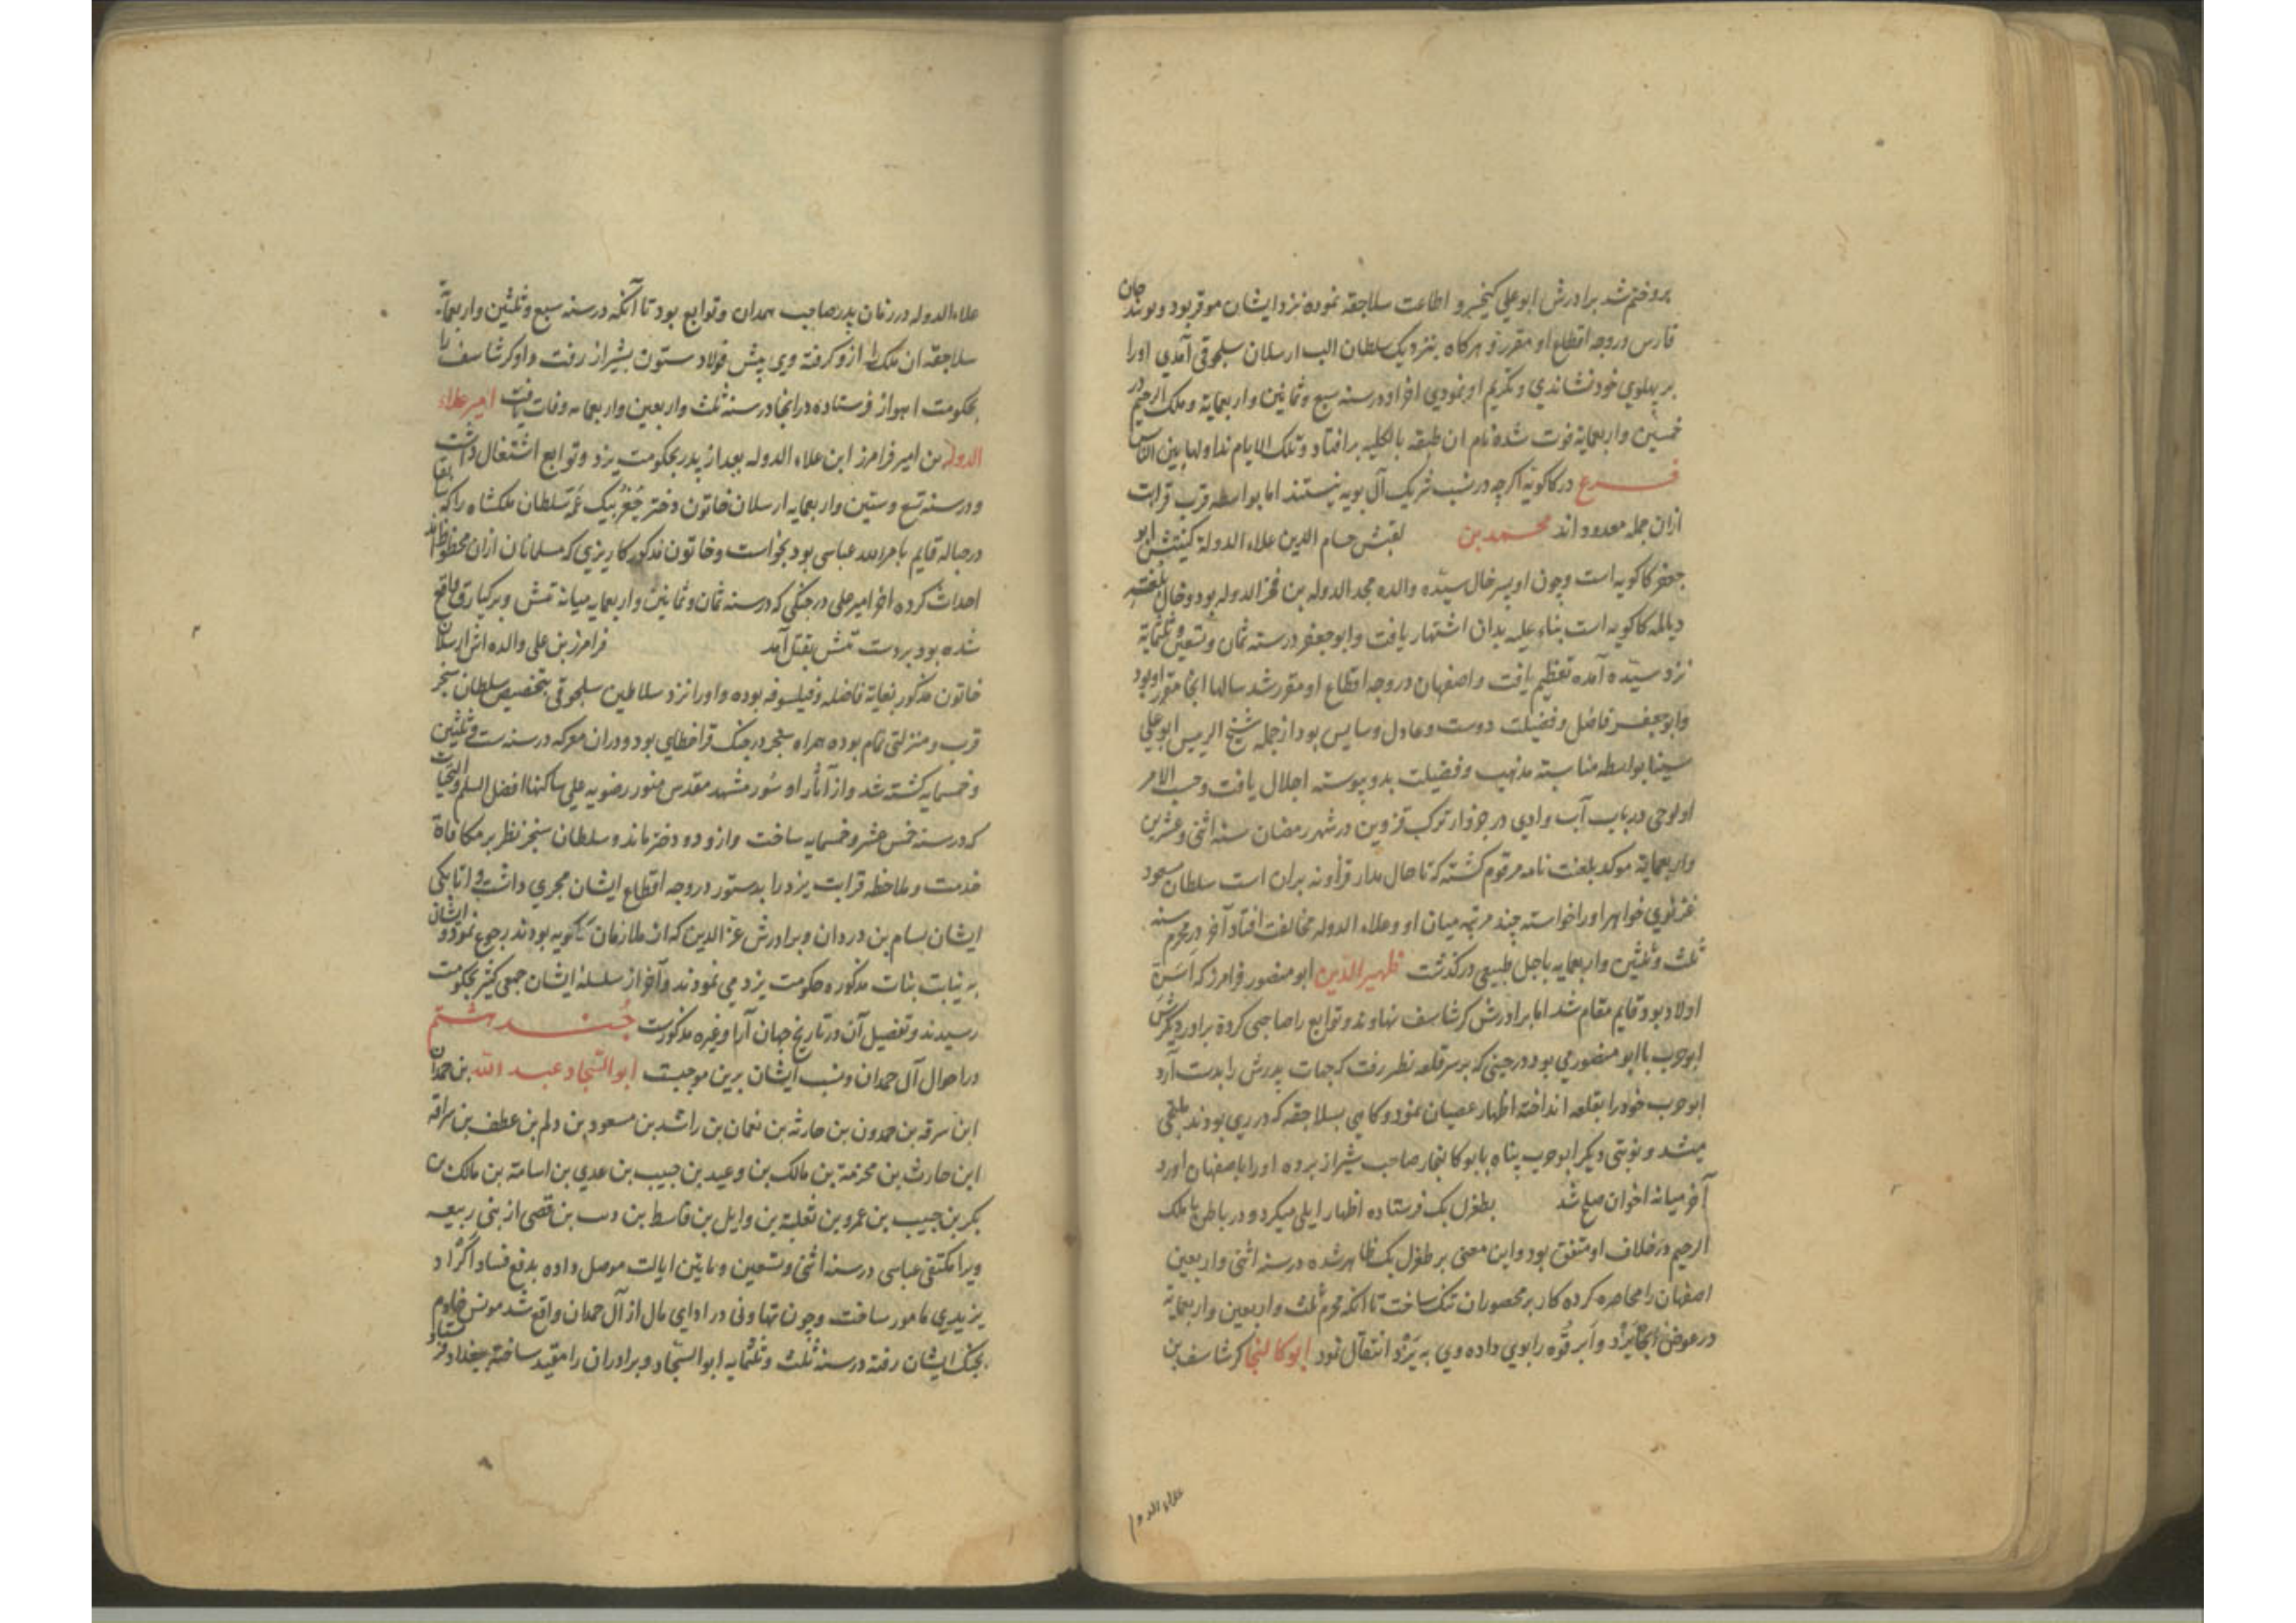 برو ختم شد برادرش ابو علی کیخسرو اطاعت سلاجقه نموده نزد ایشان موقر بود و نوبندجان
فارس در وجه اقطاع او مقرر و هرکاه بنزدیک سلطان الب ارسلان سلجوقی آمدی اورا
بر پهلوی خود نشاندی و تکریم او نمودی اخر او در سنه سبع و ثمانین و اربعمایة و ملک الرحیم در
خمسین و اربعمایة فوت شده نام ان طبقه بالکلیه بر افتاد و تلک الایام نداولها بین الناس
فرع در کاکویه اکرچه در نسب شریک آل بویه نیستند اما بواسطه قرب قرابت
ازان جمله معدود اند محمد بن لقبش حسام الدین علاء الدولة کنیتش ابو
جعفر کاکویه است و چون او پسر خال سیده والده مجد الدوله بن فخر الدوله بود و خال بلغت
دیالمه کاکویه است بناء علیه بدان اشتهار یافت و ابو جعفر در سنه ثمان و تسعین و ثلثمایة
نزد سیده آمده تعظیم یافت و اصفهان در وجه اقطاع او مقرر شد سالها انجا مقر او بود
و ابو جعفر فاضل و فضیلت دوست و عادل و سایس بود از جمله شیخ الرییس ابو علی
سینا بواسطه مناسبة مذهب و فضیلت بدو پیوسته اجلال یافت و حسب الامر
او لوحی در باب آب وادی در جوزار ترک قزوین در شهر رمضان سنه اثنی و عشرین
و اربعمایة موکد بلعنت نامه مرقوم کشته که تا حال مدار قزاونه بران است سلطان مسعود
غزنوی خواهر اورا خواسته چند مرتبه میان او و علاء الدوله مخالفت افتاد آخر در محرم سنه
ثلث و ثلثین و اربعمایه باجل طبیعی درکذشت ظهیر الدین ابو منصور فرامرز که اسن
اولاد بود قایم مقام شد اما برادرش کرشاسف نهاوند و توابع را صاحبی کرده برادر دیکرش
ابو حرب با ابو منصور می بود در حینی که بر سر قلعه نطنز رفت که جهات پدرش را بدست آرد
ابو حرب خود را بقلعه انداخته اظهار عصیان نمود و کاهی بسلاجقه که در ری بودند ملتجی
میشد و نوبتی دیکر ابو حرب پناه بابو کالنجار صاحب شیراز برده اورا باصفهان اورد
آخر میانه اخوان صلح شد بطغرل بک فرستاده اظهار ایلی میکرد و در باطن با ملک
الرحیم در خلاف او متفق بود و این معنی بر طغرل بک ظاهر شده در سنه اثنی و اربعین
اصفهان را محاصره کرده کار بر محصوران تنک ساخت تا انکه محرم ثلث و اربعین و اربعمایة
در عوض انجا یزد و ابرقوه را بوی داده وی به یزد انتقال نمود ابو کالنجار کرشاسف بن
علاء الدوله
علاء الدوله در زمان پدر صاحب همدان و توابع بود تا آنکه در سنه سبع و ثلثین و اربعمایة
سلاجقه ان ملک را ازو کرفته وی پیش فولاد ستون بشیراز رفت و او کرشاسف را
بحکومت اهواز فرستاده در انجا در سنه ثلث و اربعین و اربعمایه وفات یافت امیر علاء
الدوله بن امیر فرامرز ابن علاء الدوله بعد از پدر بحکومت یزد و توابع اشتغال داشت
و در سنه تسع و ستین و اربعمایه ارسلان خاتون دختر جغربیک عمه سلطان ملکشاه را که سابقا
در حباله قایم بامر الله عباسی بود بخواست و خاتون مذکور کاریزی که مسلمانان ازان محظوظ اند
احداث کرده اخر امیر علی در جنکی که در سنه ثمان و ثمانین و اربعمایه میانه تتش و برکیارق واقع
شده بود بر دست تتش بقتل آمد فرامرز بن علی والده اش ارسلان
خاتون مذکور بغایة فاضله و فیلسوفه بوده و اورا نزد سلاطین سلجوقی بتخصیص سلطان سنجر
قرب و منزلتی تمام بوده همراه سنجر در جنک قراخطای بود و دران معرکه در سنه ست و ثلثین
و خمسمایه کشته شد و از آثار او سور مشهد مقدس منور رضویه علی ساکنها افضل السلم و التحیات
که در سنه خمس عشر و خمسمایه ساخت و ازو دو دختر ماند و سلطان سنجر نظر بر مکافاة
خدمت و ملاحظه قرابت یزد را بدستور در وجه اقطاع ایشان مجری داشت و اتابکی
ایشان بسام بن دردان و برادرش عز الدین که از ملازمان کاکویه بودند رجوع نمود و ایشان
به نیابت بنات مذکوره حکومت یزد می نمودند و آخر از سلسله ایشان جمعی کثیر بحکومت
رسیدند و تفصیل آن در تاریخ جهان آرا و غیره مذکورست جند هشتم
در احوال آل حمدان و نسب ایشان برین موجبست ابو الهیجاء عبد الله بن حمدان
ابن سرقه بن حمدون بن حارثه بن نعمان بن راشد بن مسعود بن دلم بن عطف بن سراقه
ابن حارث بن محزمة بن مالک بن وعید بن حبیب بن عدی بن اسامة بن مالک بن
بکر بن حبیب بن عمرو بن تغلبة بن وایل بن قاسط بن وهب بن قصی از بنی ربیعه
ویرا مکتفی عباسی در سنه اثنی و تسعین و مایتین ایالت موصل داده بدفع فساد اکراد
یزیدی مامور ساخت و چون تهاونی در ادای مال از آل حمدان واقع شد مونس خادم
بجنک ایشان رفته در سنه ثلث و ثلثمایه ابو الهیجاء و برادران را مقید ساخته ببغداد فرستاد